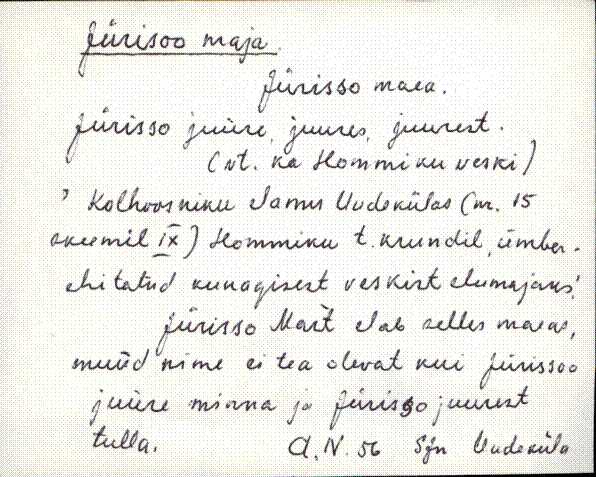 Jürisoo maja.
Jürisso maea.
Jürisso juure, juures, juurest.
(vt. ka Hommiku veski)
' Kolhoosniku elamu Uuekülas (nr. 15
skeemil IX) Hommiku t. krundil, ümber-
ehitatud kunagisest veskist elumajaks.'
Jürisso Mart elab selles maeas,
muud nime ei tea olevat kui Jürissoo
juure minna ja Jürisso juurest
tulla. A.N. 56 Sjn Uudeküla